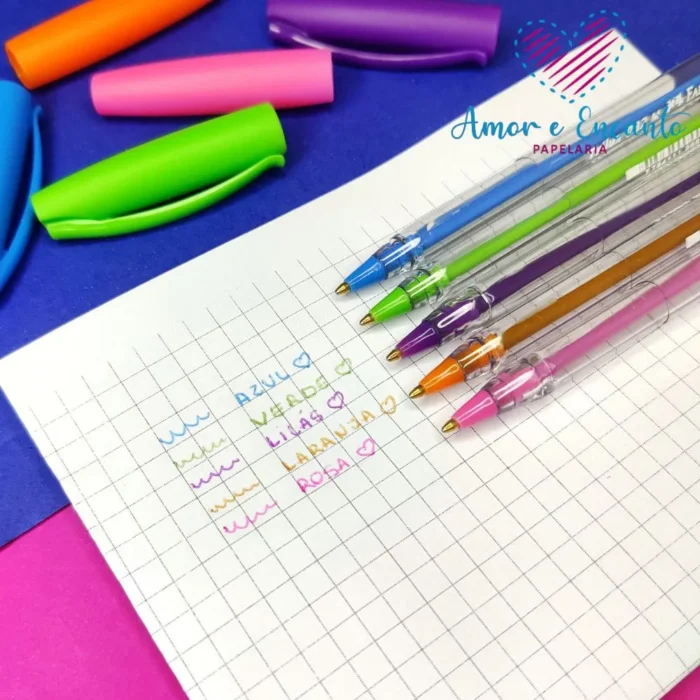 Amor e Encanto
PAPELARIA
AZUL
VERDE
LILÁS
LARANJA
ROSA